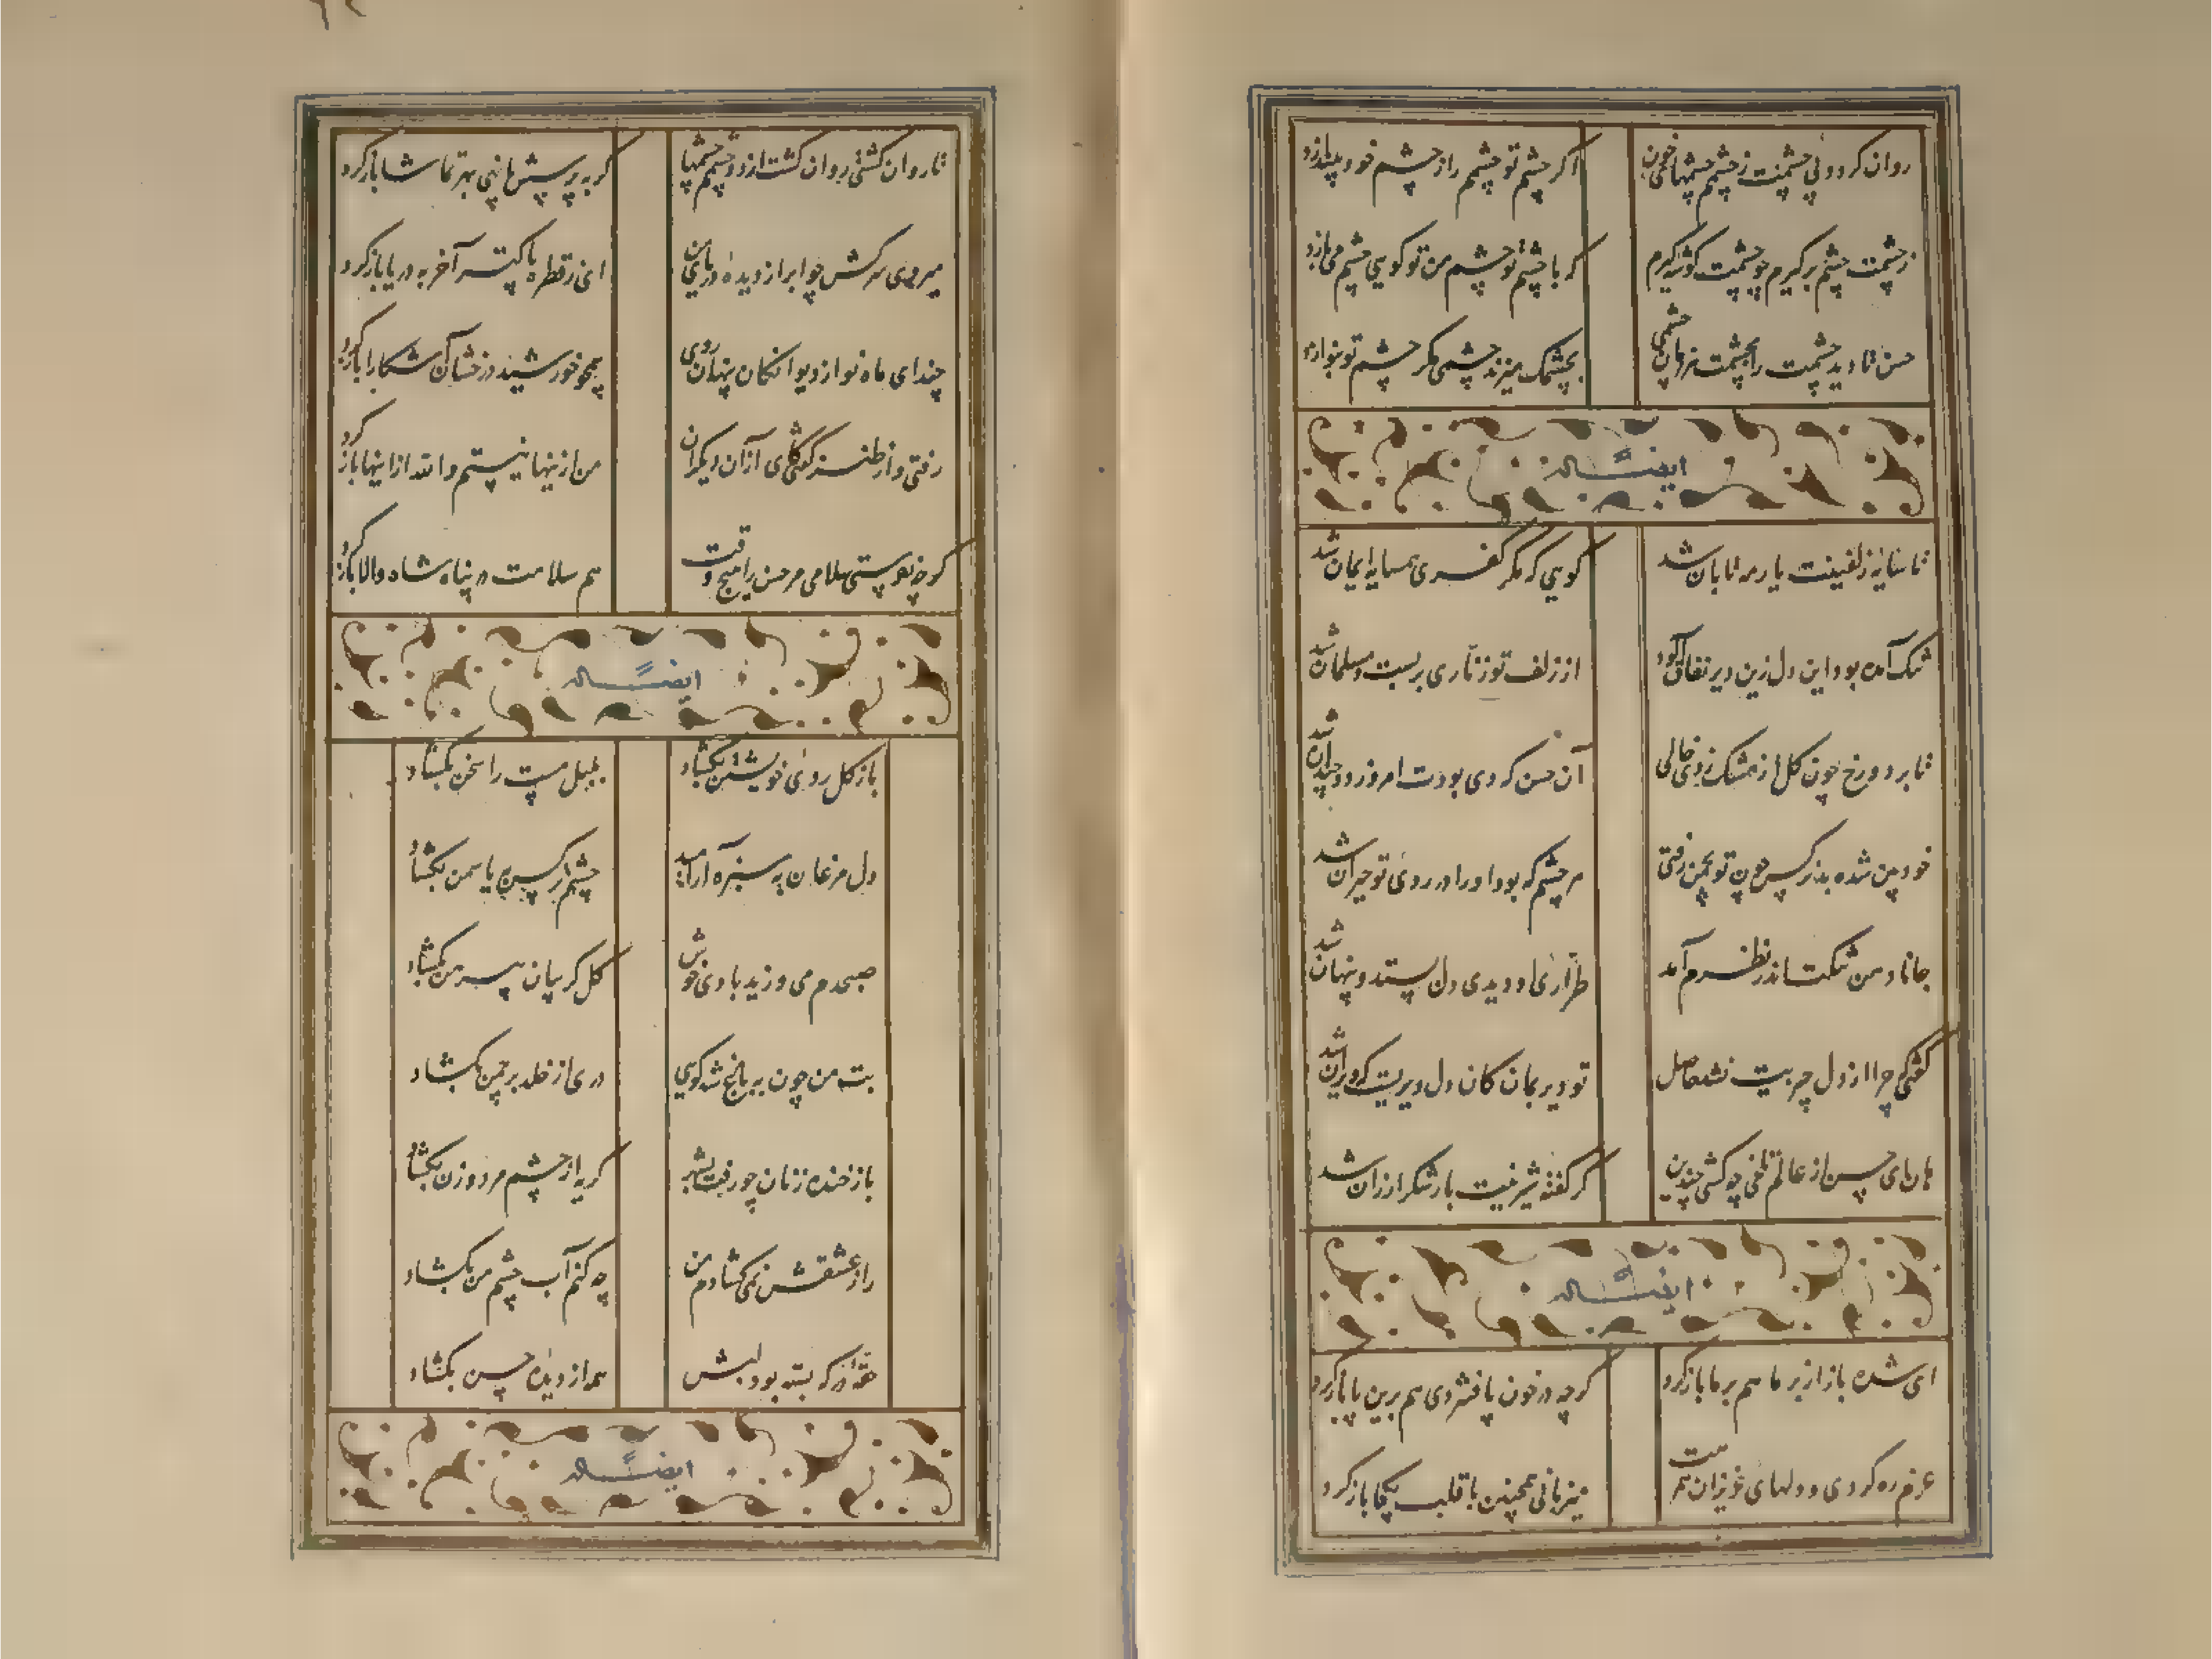 روان کردد پی چشمت ز چشمم چشمهای خون
اگر چشم تو چشمم را ز چشم خود بیندازد
ز چشمت چشم برگیرم چو چشمت گوشه گیرم
که با چشم تو چشم من تو گویی چشم می بازد
حسن تا دید چشمت را بچشمت
بچشمک میزند چشمی مگر چشم تو بنوازد
ایضاً له
تا سایهٔ زلفینت یار مه تابان شد
گویی که مگر کفری همسایهٔ ایمان شد
تنک آمده بود این دل زین دیر نفاق آلود
از زلف تو زناری بربست و مسلمان شد
تا برد و رخ چون گل از مشک زدی خالی
آن حسن که دی بودت امروز دو چندان شد
خودبین شده بد نرگس چون تو بچمن رفتی
هر چشم که بود او را در روی تو حیران شد
جانا دهن تنکت اندر نظرم آمد
طراری او دیدی دل بستد و پنهان شد
گفتی که چرا از دل جز بیت نشد حاصل
تو دیر بمان کان دل دیریست که ویران شد
هان ای حسن از عالم تلخی چه کشی چندین
کز گفتهٔ شیرینت بار شکر ارزان شد
ایضاً له
ای شده باز از بر ما هم بر ما باز گرد
گرچه در خون پا فشردی هم برین پا باز گرد
عزم ره کردی و دلهای عزیزان همرهت
میزبانی همچنین با قلب یکجا باز گرد
تا روان گشتی روان گشت از دو چشمم چشمها
گر به پرسش نهٔ بهر تماشا باز گرد
میروی سرکش چو ابر از دیدهٔ دریای من
ای ز قطره پاکتر آخر به دریا باز گرد
چند ای ماه نو از دیوانگان پنهان روی
همچو خورشید درخشان آشکارا باز گرد
رفتی و از طنز گفتی کای ازان دیگران
من ازینها نیستم والله ازاینها باز گرد
گرچه نفرستی سلامی مر حسن را هیچ وقت
هم سلامت در پناه شاه والا باز گرد
ایضاً له
باز گل روی خویشتن بگشاد
بلبل مست را سخن بگشاد
دل مرغان به سبزه آرامید
چشم نرگس به یاسمن بگشاد
صبحدم می وزید بادی خوش
گل گریبان پیرهن بگشاد
بت من چون به باغ شد گویی
دری از خلد بر چمن بگشاد
باز خنده زنان چو رفت بشهر
گریه از چشم مرد و زن بگشاد
راز عشقش نمی گشادم من
چه کنم آب چشم من بگشاد
که بسته بود لبش
هم از دیدهٔ حسن بگشاد
ایضاً له